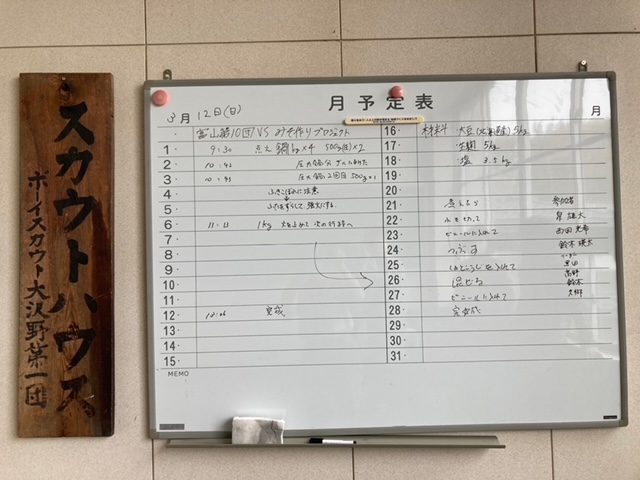 スカウトハウス
ボーイスカウト大沢野第一団
月予定表
3月12日(日)
月
富山第10団VSみそ作りプロジェクト
1 9:30 点火 鍋1kg×4 500g(圧)×2
2 10:42
3 10:43 圧力鍋2回目 500g×1
4 ふきこぼれに注意
5 ふたをずらして、強火にする。
6 11:21 1kg 火を止めて 次の行程へ
7
8
9
10
11
12 12:06 完成
13
14
15
MEMO
16 材料 大豆(北海道産)5kg
17 生麹 5kg
18 塩 2.5kg
19
20
21 煮えたら 参加者
22 水を切って 雄太
23 ビニールに入れて 西田
24 つぶす 鈴木 瑛太
25 しおこうじを入れて 黒田
26 混ぜる 高野 鈴木
27 ビニールに入れて 久郷
28 完成
29
30
31